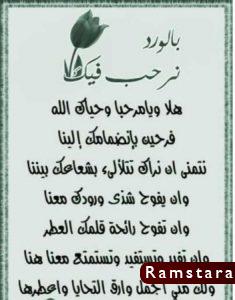 بالورد
نرحب فيك
هلا ويامرحبا وحياك الله
فرحين بإنضمامك إلينا
نتمنى ان نراك تتلألىء بشعاعك بيننا
وان يفوح شذى ورودك معنا
وان تفوح رائحة قلمك العطر
وان تفيد وتستفيد وتستمتع معنا هنا
ولك مني اجمل وارق التحايا واعطرها
Ramstara